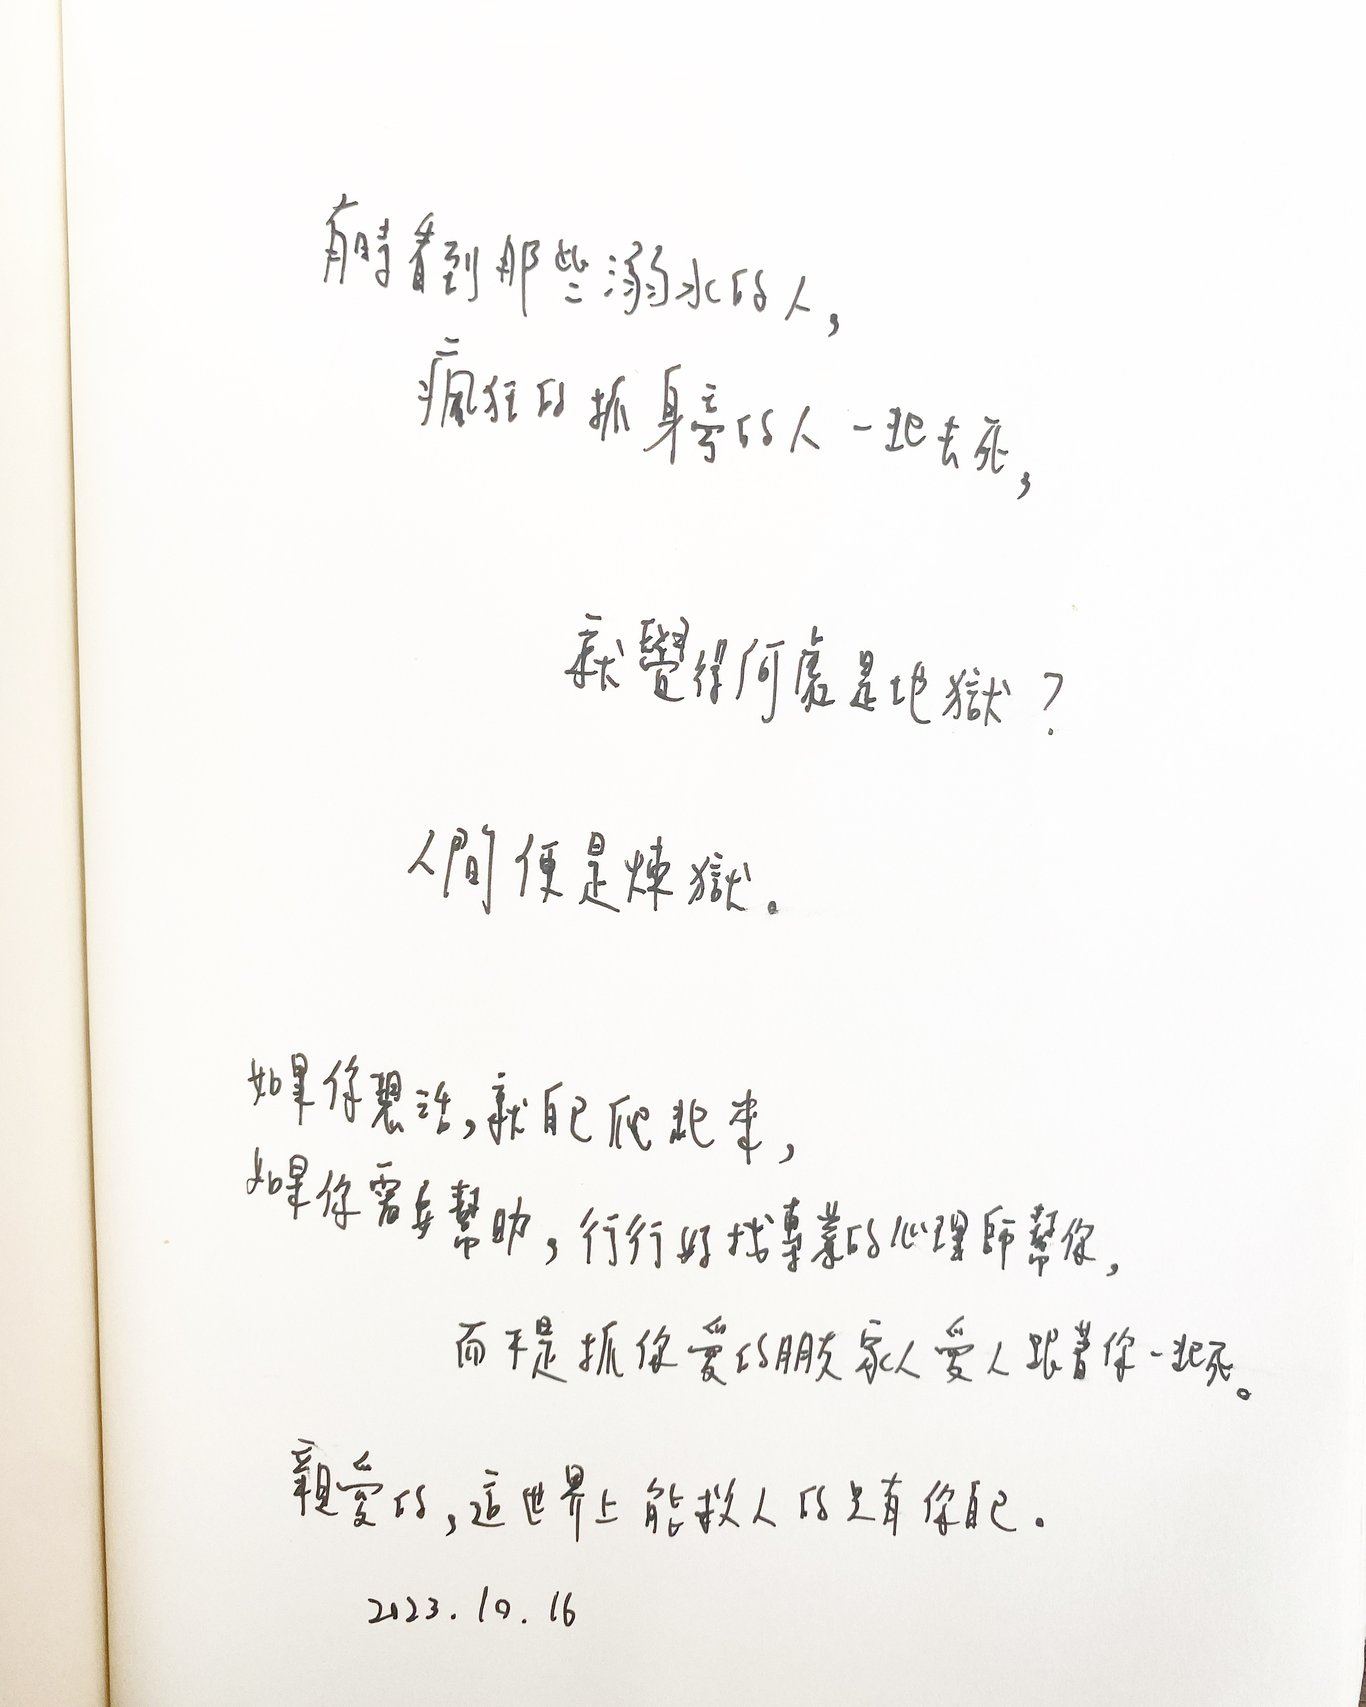 有時看到那些溺水的人,
瘋狂的抓身旁的人一起去死,
就覺得何處是地獄?
人間便是煉獄。
如果你想活,就自己爬起來,
如果你需要幫助,行行好找專業的心理師幫你,
而不是抓你愛的朋友家人愛人跟著你一起死。
親愛的,這世界上能救人的只有你自己.
2023.10.16